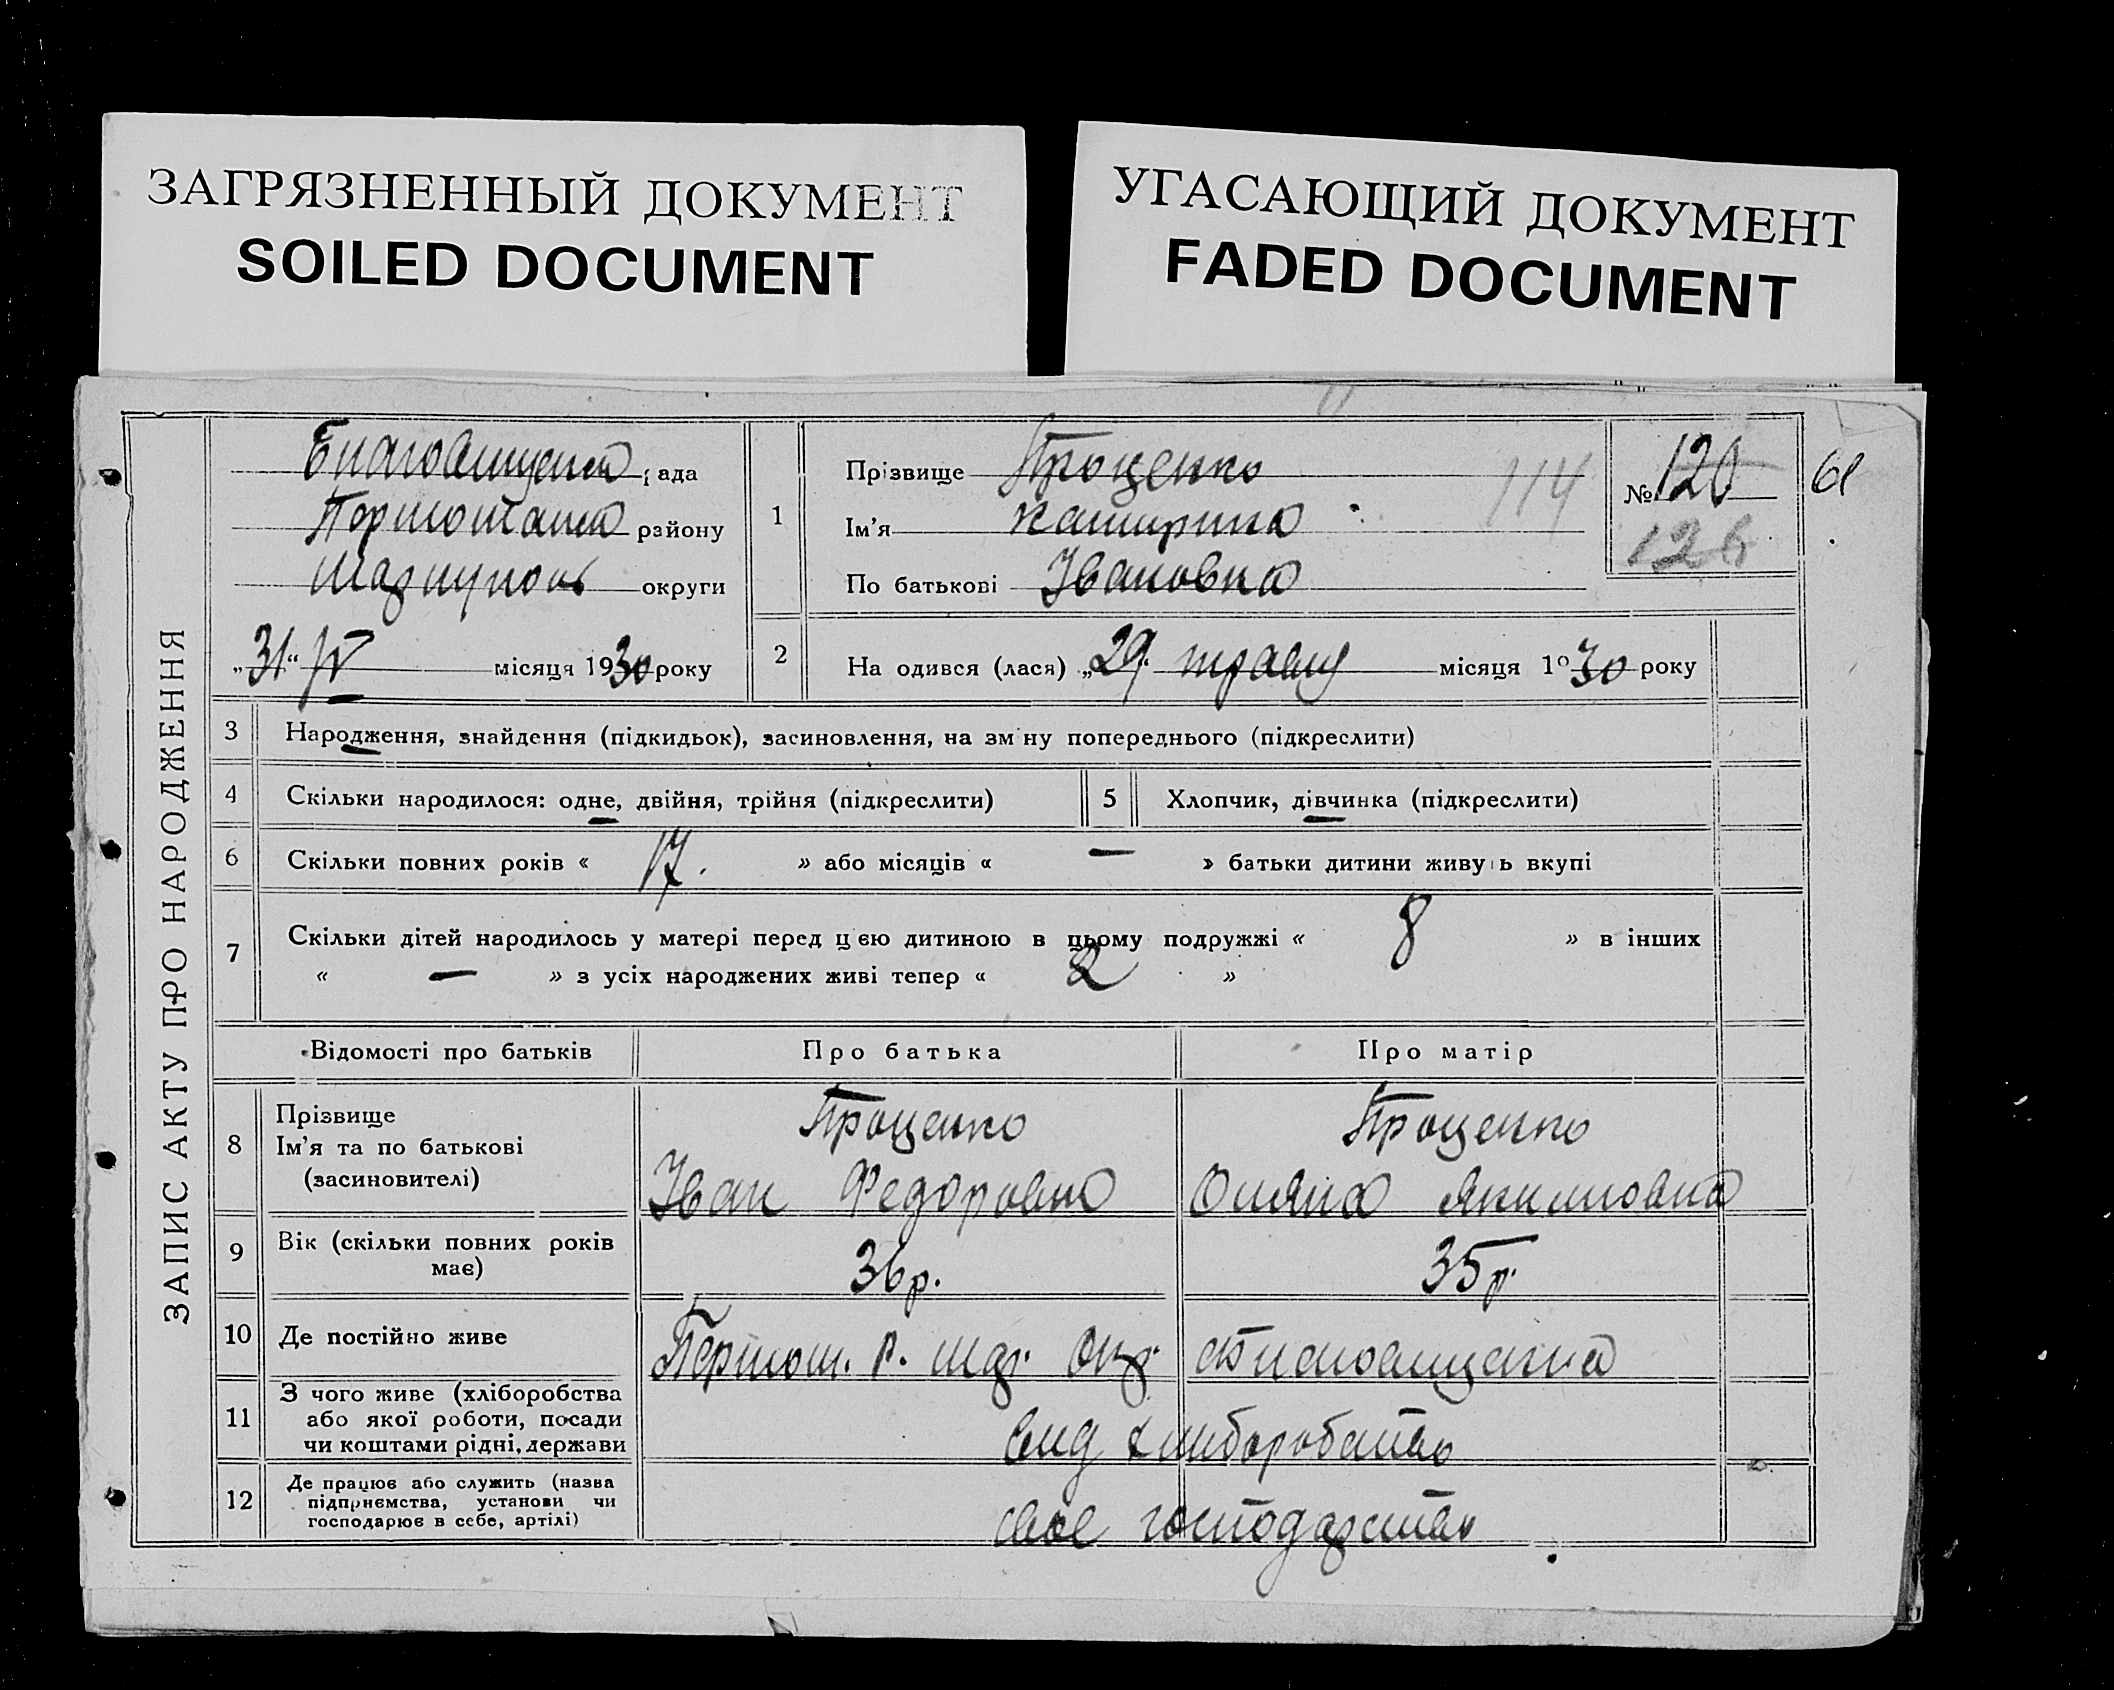 ЗАГРЯЗНЕННЫЙ ДОКУМЕНТ
SOILED DOCUMENT
УГАСАЮЩИЙ ДОКУМЕНТ
FADED DOCUMENT
ЗАПИС АКТУ ПРО НАРОДЖЕННЯ
рада
району
округи
„31“ IV місяця 1930 року
1
Прізвище Проценко
Ім’я Катирина
По батькові Івановна
114
№ 120
126
61
2
На одився (лася) „29“ травня місяця 1930 року
3 Народження, знайдення (підкидьок), засиновлення, на зм ну попереднього (підкреслити)
4 Скільки народилося: одне, двійня, трійня (підкреслити) 5 Хлопчик, дівчинка (підкреслити)
6 Скільки повних років « 17. » або місяців « — » батьки дитини живуть вкупі
7 Скільки дітей народилось у матері перед цією дитиною в цьому подружжі « 8 » в інших
« — » з усіх народжених живі тепер « 2 »
Відомості про батьків Про батька Про матір
8 Прізвище
Ім’я та по батькові
(засиновителі)
Проценко
Іван Федоровно
Проценко
Акимовна
9 Вік (скільки повних років
має)
36р. 35р.
10 Де постійно живе
11 З чого живе (хліборобства
або якої роботи, посади
чи коштами рідні, держави
вид хлиборобство
12 Де працює або служить (назва
підприємства, установи чи
господарює в себе, артілі)
своє господарство